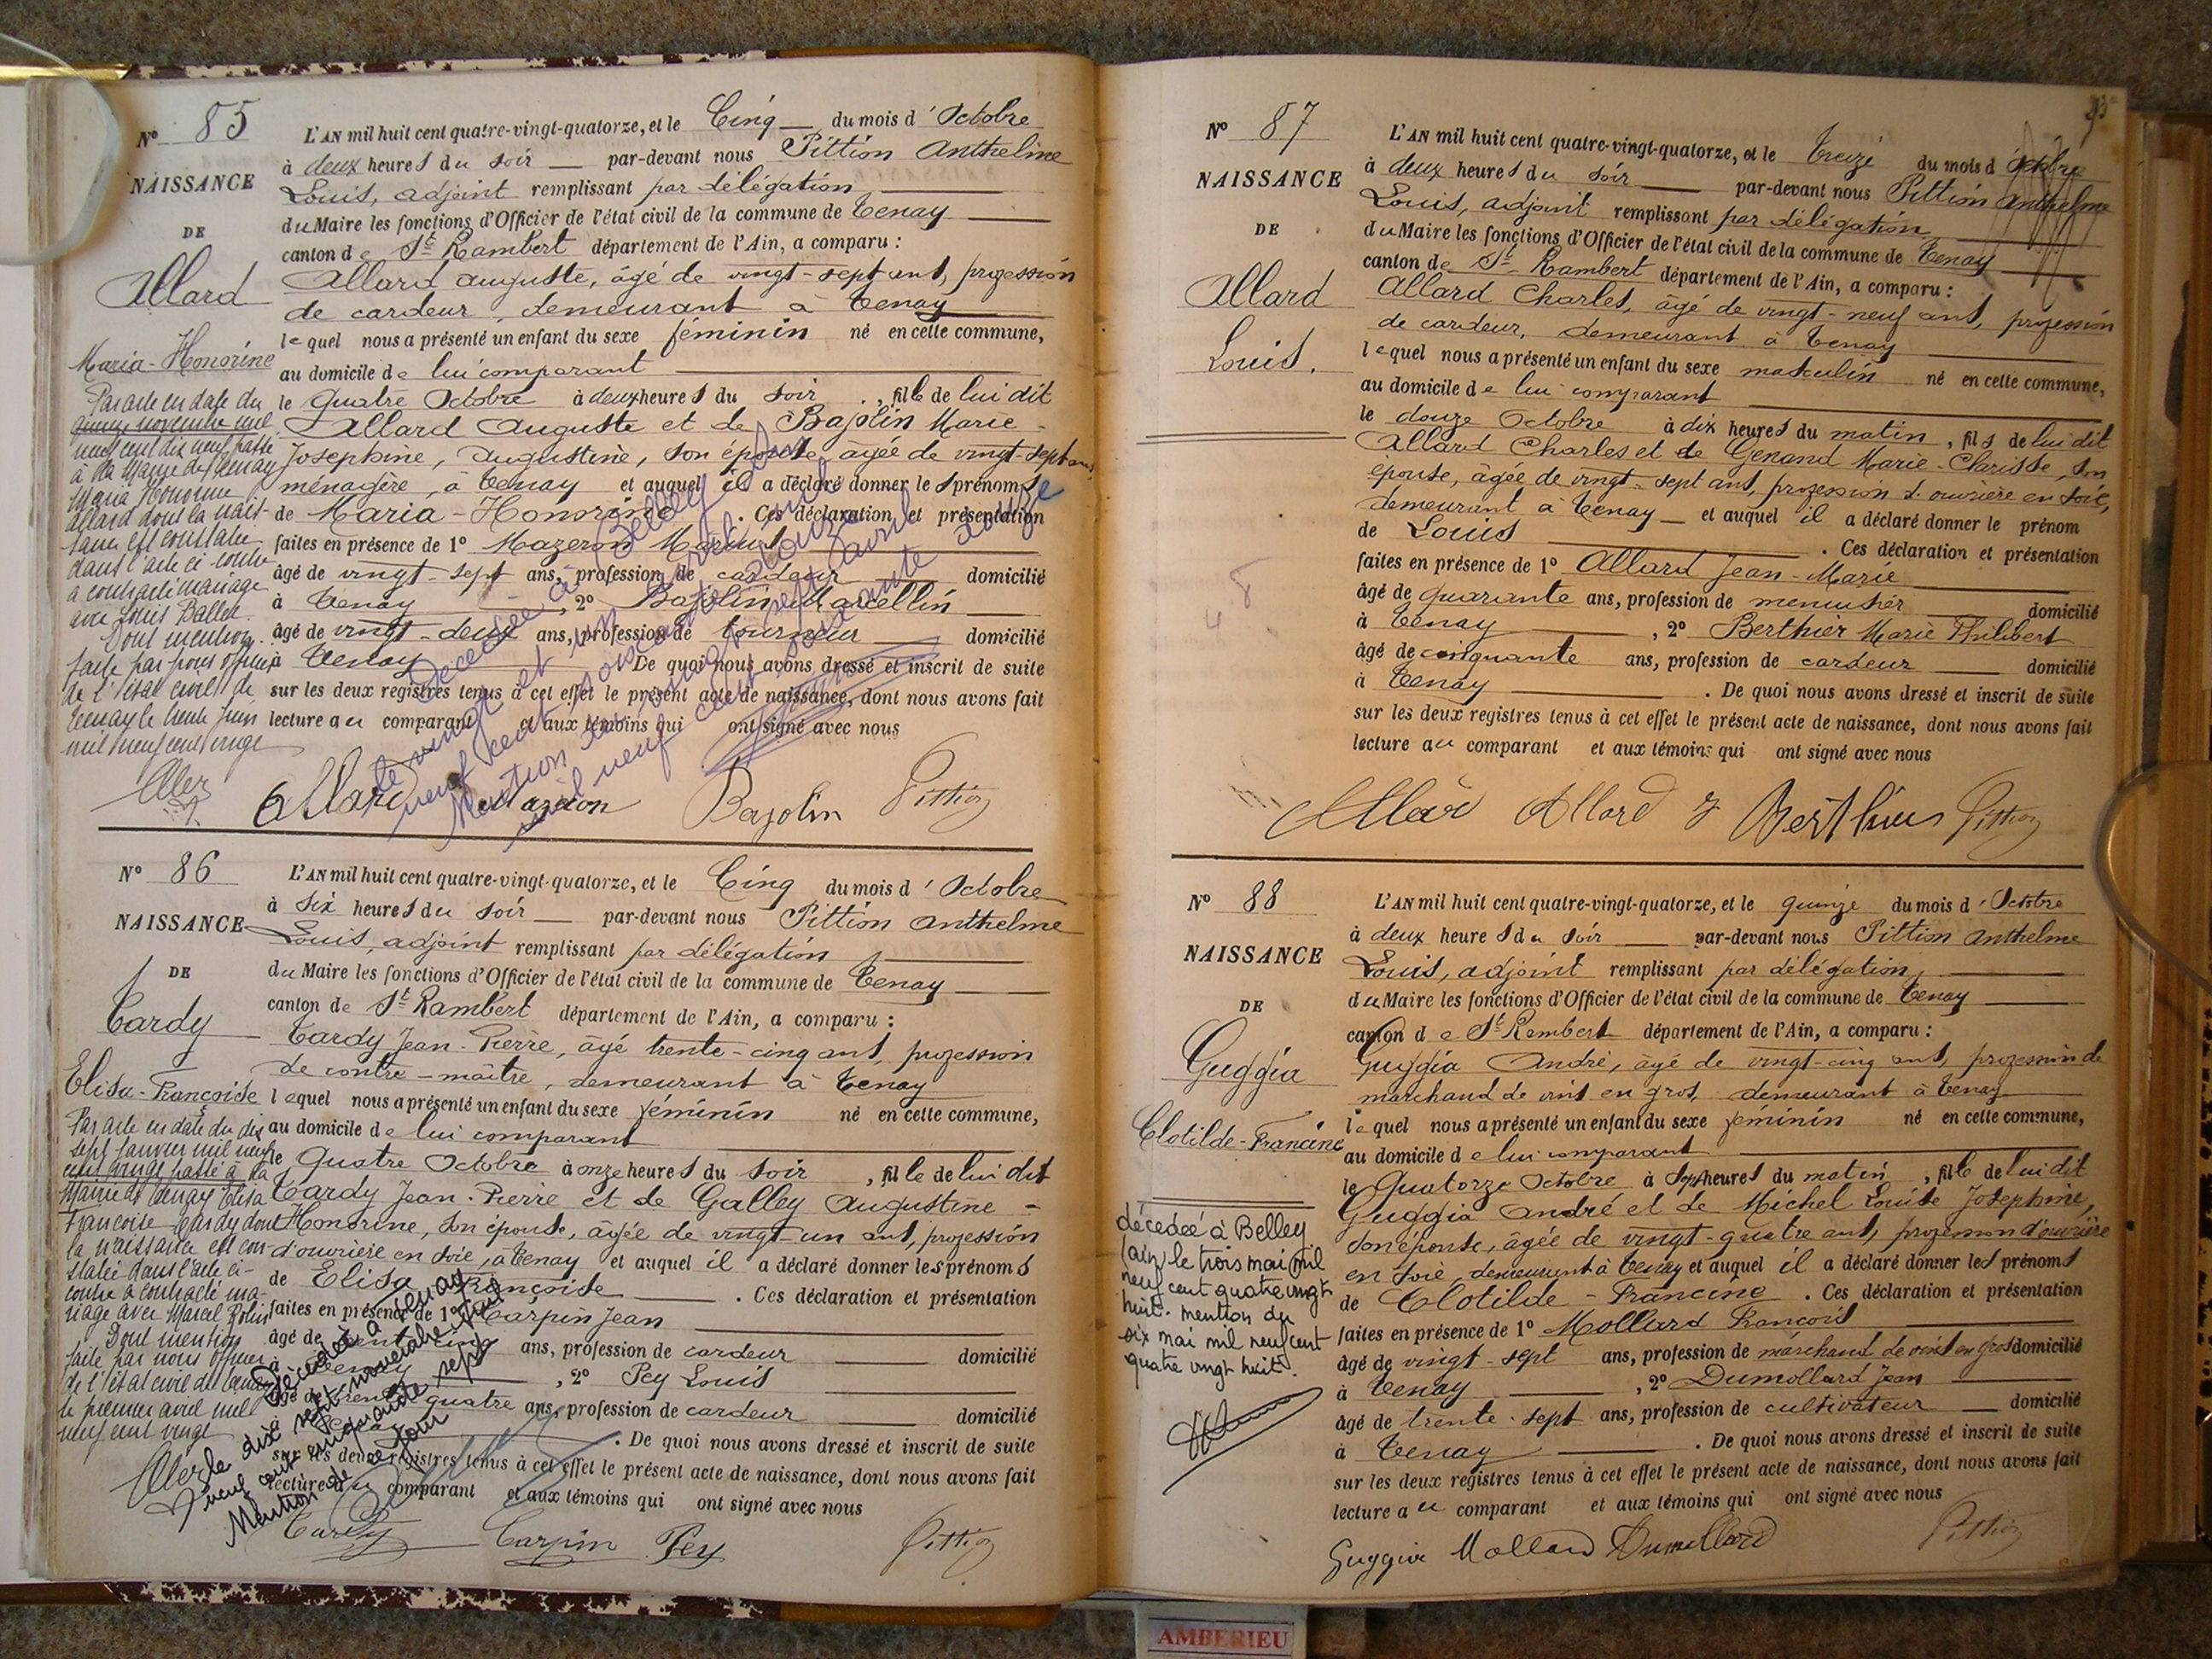 N° 85
NAISSANCE
DE
Allard
Maria-Honorine
Par acte en date du
quinze novembre mil
neuf cent dix neuf passé
à la Mairie de Tenay
Maria Honorine
Allard dont la nais-
sance est constatée
dans l'acte ci-contre
a contracté mariage
avec Louis Ballet.
Dont mention
faite par nous officier
de l'état civil de
Tenay le trente juin
mil neuf cent vingt
L'AN mil huit cent quatre-vingt-quatorze, et le Cinq du mois d'Octobre
à deux heures du soir par-devant nous Pittion Anthelme
Louis, adjoint remplissant par délégation
du Maire les fonctions d'Officier de l'état civil de la commune de Tenay
canton de St Rambert département de l'Ain, a comparu :
Allard Auguste, âgé de vingt-sept ans, profession
de cardeur, demeurant à Tenay
lequel nous a présenté un enfant du sexe féminin né en cette commune,
au domicile de lui comparant
le quatre Octobre à deux heures du soir, fille de lui dit
Allard Auguste et de Bajolin Marie-
Josephine, Augustine, son épouse, âgée de vingt-sept ans,
ménagère, à Tenay et auquel il a déclaré donner les prénoms
de Maria-Honorine. Ces déclaration et présentation
faites en présence de 1° Mazeron Marius
âgé de vingt-sept ans, profession de cardeur domicilié
à Tenay, 2° Bajolin Marcellin
âgé de vingt-deux ans, profession de tourneur domicilié
à Tenay De quoi nous avons dressé et inscrit de suite
sur les deux registres tenus à cet effet le présent acte de naissance, dont nous avons fait
lecture au comparant et aux témoins qui ont signé avec nous
Décédée à Belley
le vingt et un avril mil
neuf cent soixante douze
Mention du vingt sept avril
mil neuf cent soixante douze
Allard Mazeron Bajolin Pittion
N° 86
NAISSANCE
DE
Tardy
Elisa-Françoise
Par acte en date du dix
sept janvier mil neuf
cent vingt passé à la
Mairie de Tenay Elisa
Françoise Tardy dont
la naissance est cons-
statée dans l'acte ci-
contre a contracté ma-
riage avec Marcel
Dont mention
faite par nous officier
de l'état civil de Tenay
le premier avril mil
neuf cent vingt
L'AN mil huit cent quatre-vingt-quatorze, et le Cinq du mois d'Octobre
à six heures du soir par-devant nous Pittion Anthelme
Louis, adjoint remplissant par délégation
du Maire les fonctions d'Officier de l'état civil de la commune de Tenay
canton de St Rambert département de l'Ain, a comparu :
Tardy Jean-Pierre, âgé trente-cinq ans, profession
de contre-maître, demeurant à Tenay
lequel nous a présenté un enfant du sexe féminin né en cette commune,
au domicile de lui comparant
le Quatre Octobre à onze heures du soir, fille de lui dit
Tardy Jean-Pierre et de Galley Augustine-
Honorine, son épouse, âgée de vingt-un ans, profession
d'ouvrière en soie, à Tenay et auquel il a déclaré donner les prénoms
de Elisa-Françoise. Ces déclaration et présentation
faites en présence de 1° Carpin Jean
âgé de cinq ans, profession de cardeur domicilié
à Tenay, 2° Pey Louis
âgé de trente quatre ans, profession de cardeur domicilié
à Tenay. De quoi nous avons dressé et inscrit de suite
sur les deux registres tenus à cet effet le présent acte de naissance, dont nous avons fait
lecture au comparant et aux témoins qui ont signé avec nous
Décédée à Tenay
le dix sept novembre mil
neuf cent cinquante sept
Mention de ce jour
Tardy Carpin Pey Pittion
N° 87
NAISSANCE
DE
Allard
Louis.
L'AN mil huit cent quatre-vingt-quatorze, et le treize du mois d'octobre
à deux heures du soir par-devant nous Pittion Anthelme
Louis, adjoint remplissant par délégation
du Maire les fonctions d'Officier de l'état civil de la commune de Tenay
canton de St Rambert département de l'Ain, a comparu :
Allard Charles, âgé de vingt-neuf ans, profession
de cardeur, demeurant à Tenay
lequel nous a présenté un enfant du sexe masculin né en cette commune,
au domicile de lui comparant
le douze Octobre à dix heures du matin, fils de lui dit
Allard Charles et de Genand Marie-Clarisse, son
épouse, âgée de vingt-sept ans, profession d'ouvrière en soie,
demeurant à Tenay et auquel il a déclaré donner le prénom
de Louis. Ces déclaration et présentation
faites en présence de 1° Allard Jean-Marie
âgé de quarante ans, profession de menuisier domicilié
à Tenay, 2° Berthier Marie Philibert
âgé de cinquante ans, profession de cardeur domicilié
à Tenay. De quoi nous avons dressé et inscrit de suite
sur les deux registres tenus à cet effet le présent acte de naissance, dont nous avons fait
lecture au comparant et aux témoins qui ont signé avec nous
Allard Berthier Pittion
N° 88
NAISSANCE
DE
Guggia
Clotilde-Francine
décédée à Belley
(ain) le trois mai mil
neuf cent quatre vingt
huit. mention du
six mai mil neuf cent
quatre vingt huit.
L'AN mil huit cent quatre-vingt-quatorze, et le quinze du mois d'Octobre
à deux heures du soir par-devant nous Pittion Anthelme
Louis, adjoint remplissant par délégation,
du Maire les fonctions d'Officier de l'état civil de la commune de Tenay
canton de St Rambert département de l'Ain, a comparu :
Guggia André, âgé de vingt-cinq ans, profession de
marchand de vins en gros, demeurant à Tenay
lequel nous a présenté un enfant du sexe féminin né en cette commune,
au domicile de lui comparant
le Quatorze Octobre à sept heures du matin, fille de lui dit
Guggia André et de Michel Louise Josephine,
son épouse, âgée de vingt-quatre ans, profession d'ouvrière
en soie, demeurant à Tenay et auquel il a déclaré donner les prénoms
de Clotilde-Francine. Ces déclaration et présentation
faites en présence de 1° Mollard François
âgé de vingt-sept ans, profession de marchand de vins en gros domicilié
à Tenay, 2° Dumollard Jean
âgé de trente-sept ans, profession de cultivateur domicilié
à Tenay. De quoi nous avons dressé et inscrit de suite
sur les deux registres tenus à cet effet le présent acte de naissance, dont nous avons fait
lecture au comparant et aux témoins qui ont signé avec nous
Guggia Mollard Dumollard Pittion
AMBERIEU